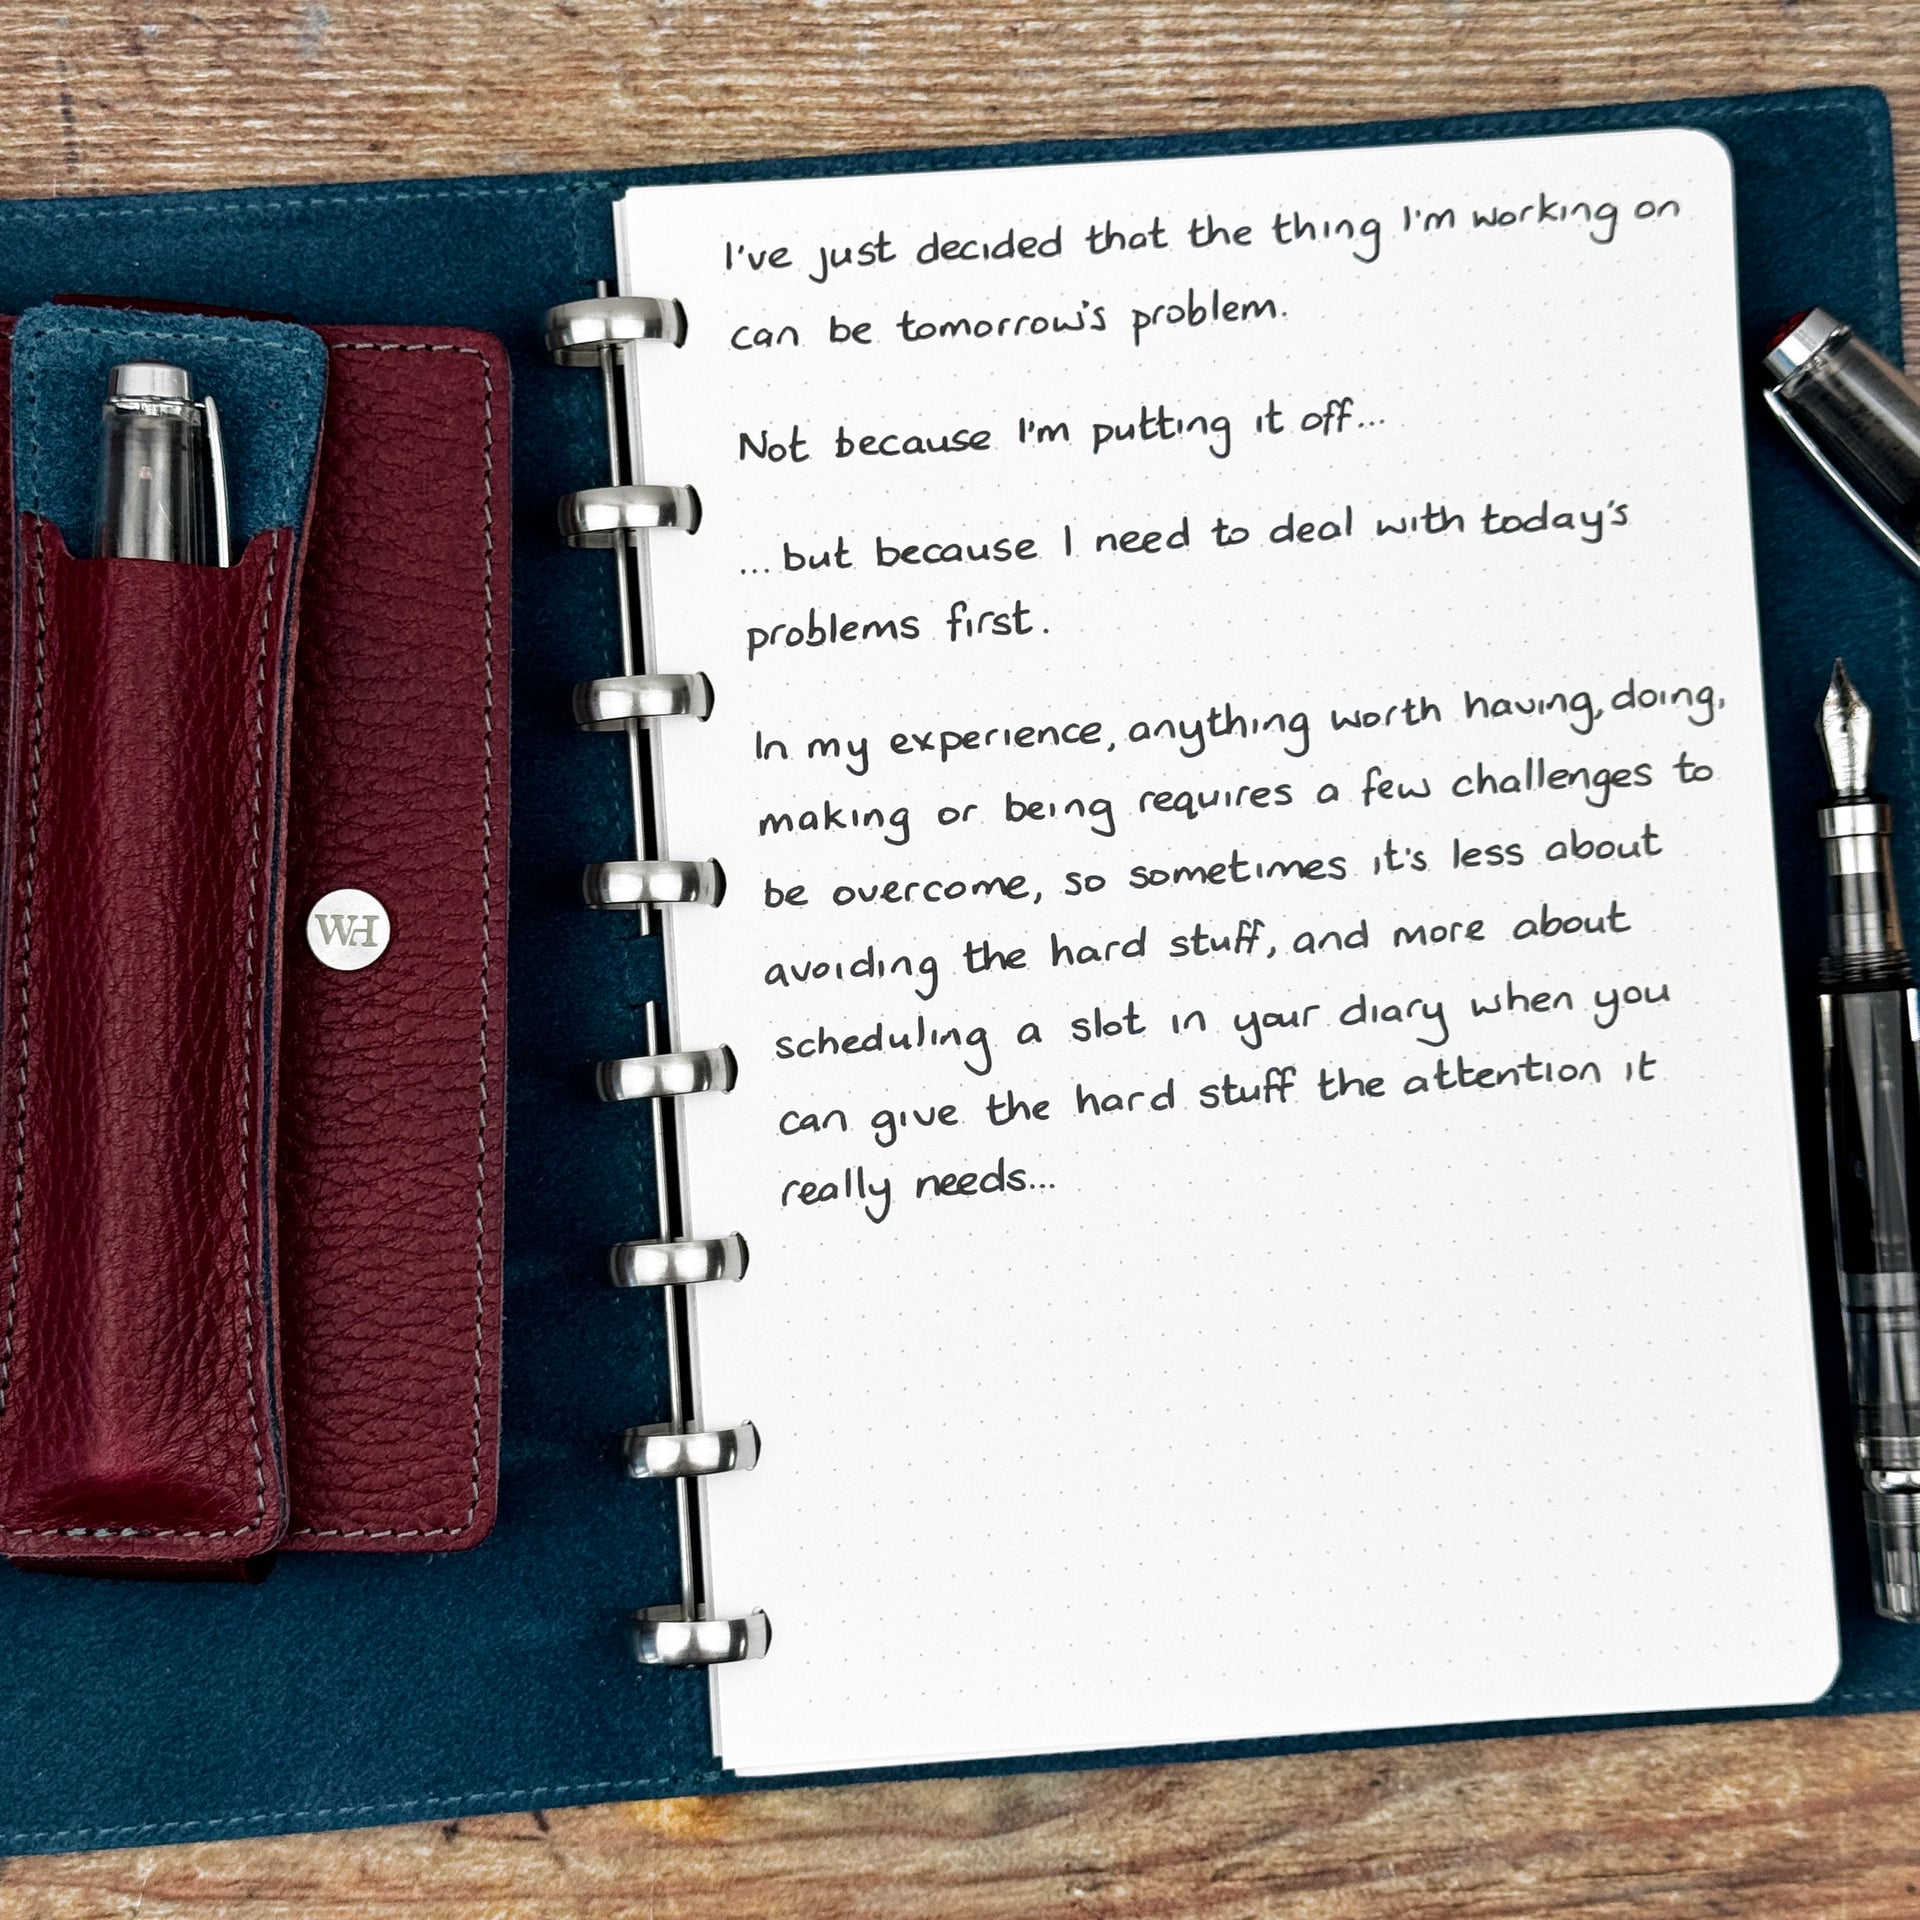 I've just decided that the thing I'm working on
can be tomorrow's problem.
Not because I'm putting it off...
...but because I need to deal with today's
problems first.
In my experience, anything worth having, doing,
making or being requires a few challenges to
be overcome, so sometimes it's less about
avoiding the hard stuff, and more about
scheduling a slot in your diary when you
can give the hard stuff the attention it
really needs...
WH